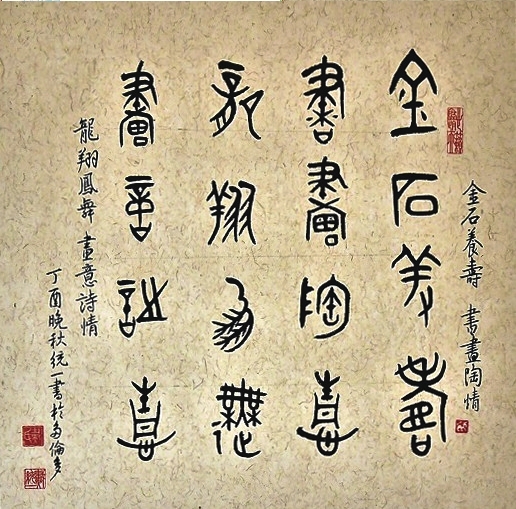 金石養壽 書畫陶情
金石養壽
書畫陶情
龍翔鳳舞
畫意詩情
龍翔鳳舞 畫意詩情
丁酉晚秋統一書於多倫多